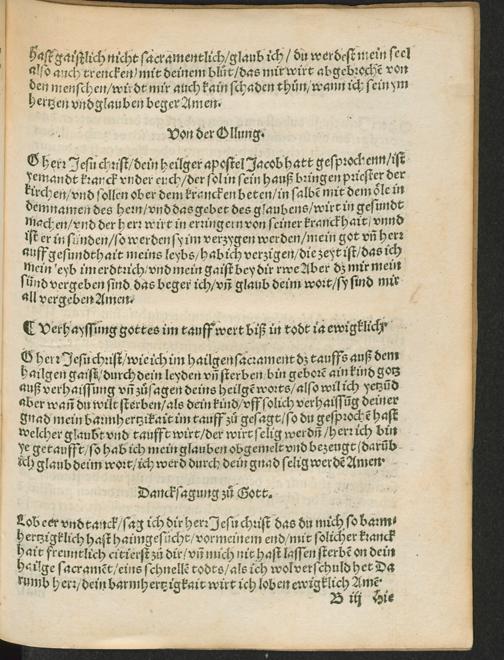 hast gaistlich nicht sacramentlich/glaub ich/du werdest mein seel
also auch trencken/mit deinem blůt/das mir wirt abgebrochẽ von
den menschen/wirdt mir auch kain schaden thůn/wann ich sein ym
hertzen vnd glauben beger Amen.
Von der Ollung.
O herr Jesu christ/dein heilger apostel Jacob hatt gesprochenn/ist
yemandt kranck vnder euch/der sol in sein hauß bringen priester der
kirchen/vnd sollen ober dem krancken beten/in salbẽ mit dem óle in
dem namen des hern/vnd das gebet des glaubens/wirt in gesundt
machen/vnd der herr wirt in erringern von seiner kranckhait/vnnd
ist er in sünden/so werden sy im verzygen werden/mein got vñ herr
auff gesundthait meins leybs/hab ich verzigen/die zeyt ist/das ich
mein leyb im erdtrich/vnd mein gaist bey dir rwe Aber dz mir mein
sünd vergeben sind das beger ich/vñ glaub deim wort/sy sind mir
all vergeben Amen.
¶ Verhayssung gottes im tauff wert biß in todt ia ewigklich
O herr Jesu christ/wie ich im hailgen sacrament dz tauffs auß dem
hailgen gaist/durch dein leyden vñ sterben bin geborẽ ain kind gotz
auß verhaissung vñ zůsagen deins heilgẽ worts/also wil ich yetzũd
aber wañ du wilt sterben/als dein kind/vff solich verhaissũg deiner
gnad mein barmhertzikait im tauff zů gesagt/so du gesprochẽ hast
welcher glaubt vnd taufft wirt/der wirt selig werdñ/herr ich bin
ye getaufft/so hab ich mein glauben obgemelt vnd bezeugt/darũb
ich glaub deim wort/ich werd durch dein gnad selig werdẽ Amen
Dancksagung zů Gott.
Lob eer vnd tanck/sag ich dir herr Jesu christ das du mich so barm⸗
hertzigklich hast haimgesůcht/vor meinem end/mit solicher kranck
hait freuntlich citierst zů dir/vñ mich nit hast lassen sterbẽ on dein
hailge sacramẽt/eins schnellẽ todts/als ich wol verschuld het Da
rumb herr/dein barmhertzigkait wirt ich loben ewigklich Amẽ
B iij Hie